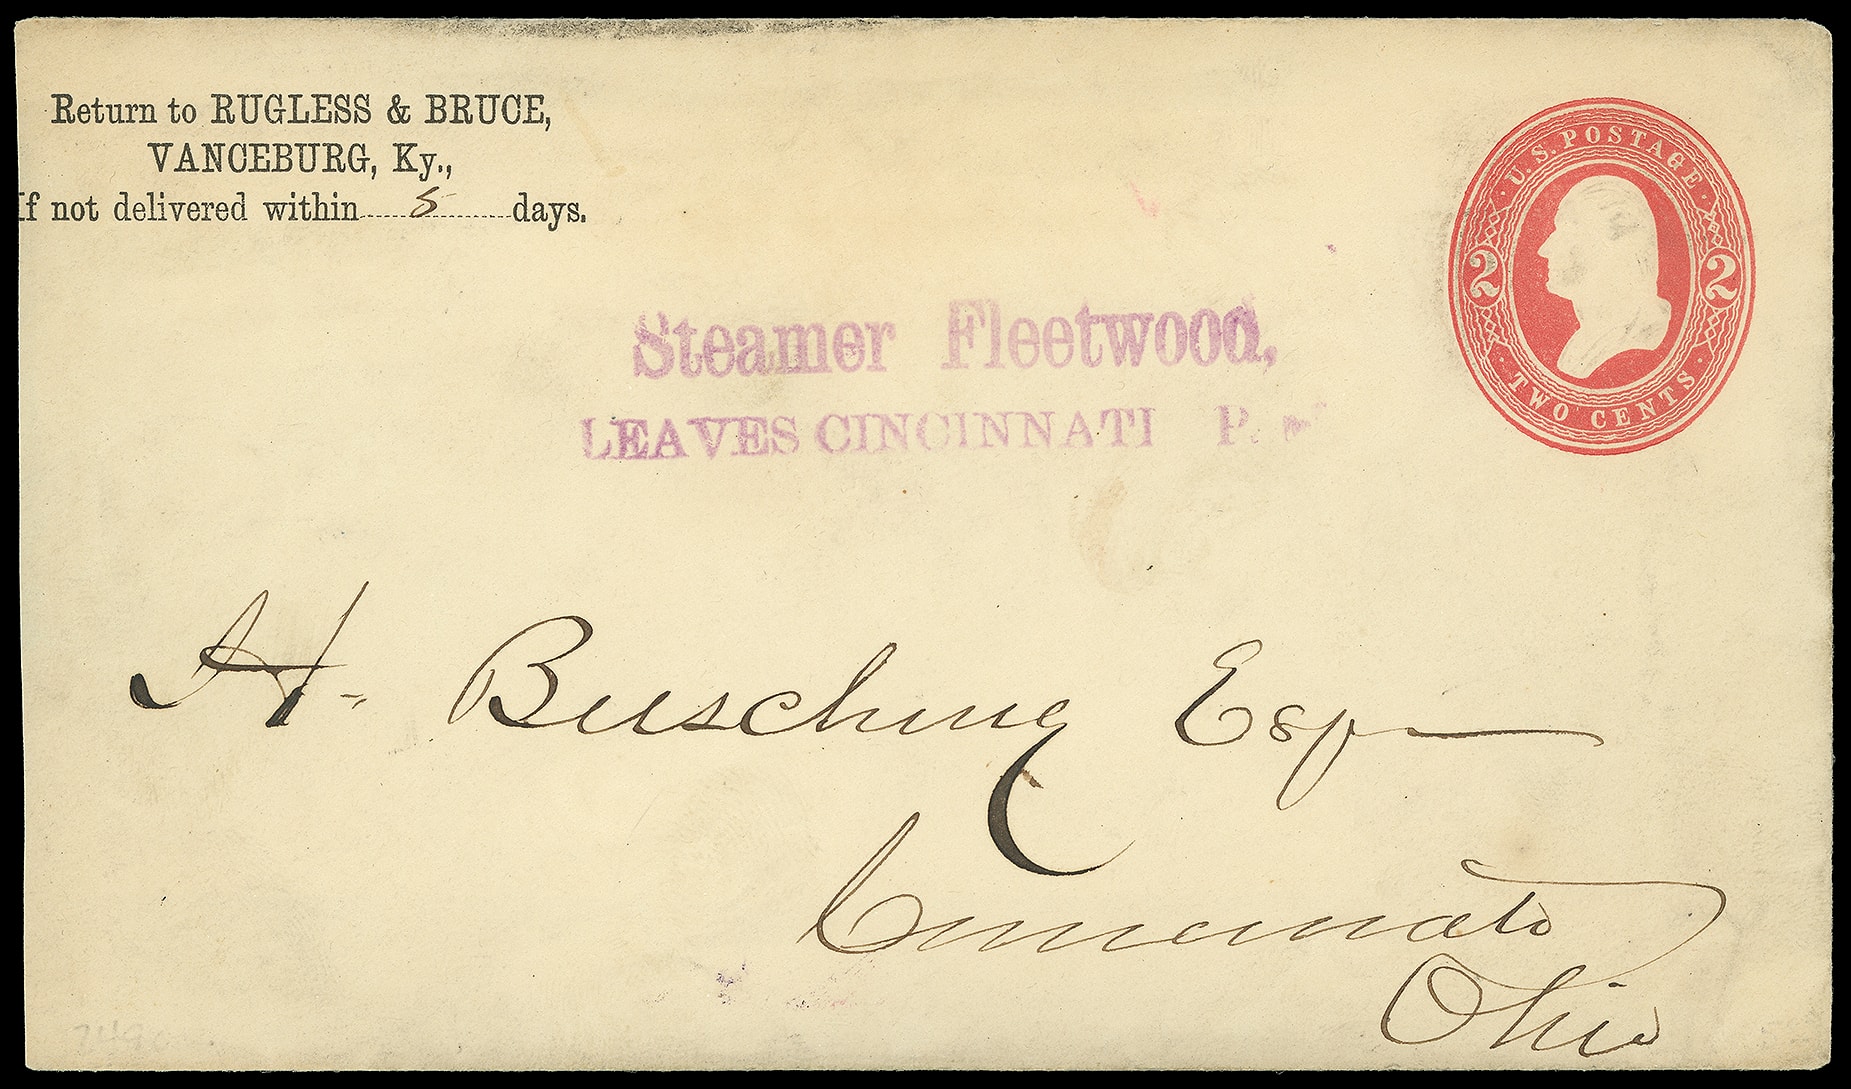 Return to RUGLESS & BRUCE,
VANCEBURG, Ky.,
If not delivered within 5 days.
U.S. POSTAGE
2 2
TWO CENTS
Steamer Fleetwood,
LEAVES CINCINNATI P.
H. Busching Esq
Cincinnati
Ohio